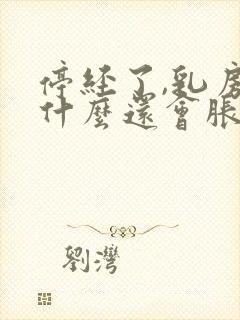 停经了,乳房
什麼還會脹
劉灣